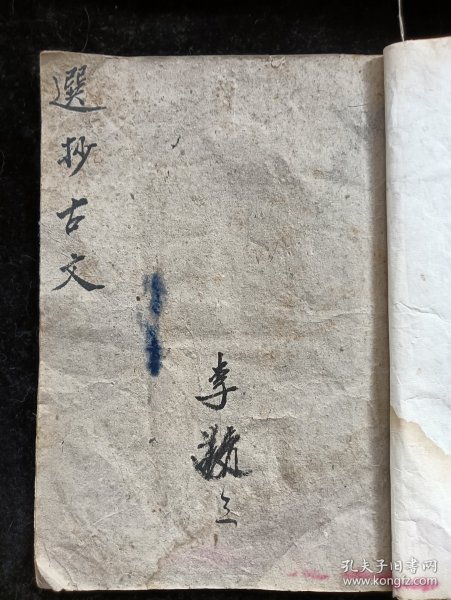 選抄古文
李
立
孔夫子旧书网
www.kongfz.com